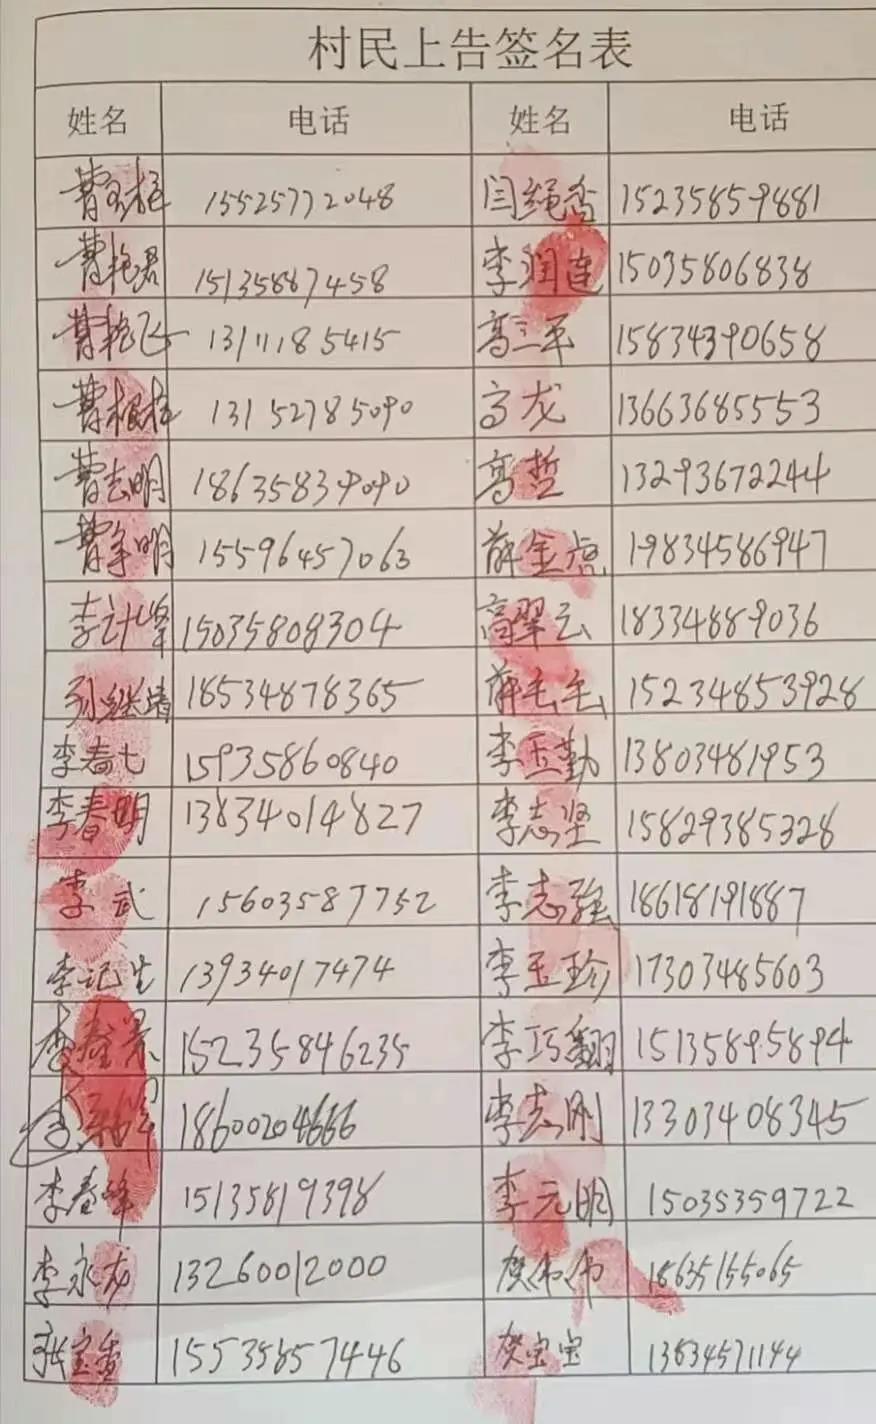 村民上告签名表
姓名 电话 姓名 电话
曹玉柱 15525772048 闫绳香 15235859881
曹艳君 15135887458 李润连 15035806838
曹艳飞 13111185415 高三平 15834390658
曹根柱 13152785090 高龙 13663685553
曹志明 18635839090 高哲 13293672244
曹争明 15596457063 薛金虎 19834586947
李计峰 15035808304 高翠云 18334889036
孙继靖 18534878365 薛毛毛 15234853928
李春七 15935860840 李玉勤 13803481953
李春明 13834014827 李志坚 15829385328
李武 15603587752 李志强 18618191887
李记生 13934017474 李玉珍 17303485603
李春景 15235846235 李巧翻 15135895894
18600204666 李志刚 13303408345
李春峰 15135819398 李元明 15035359722
李永龙 13260012000 贺伟伟 18635155065
张宝香 15535857446 贺宝宝 13834571144